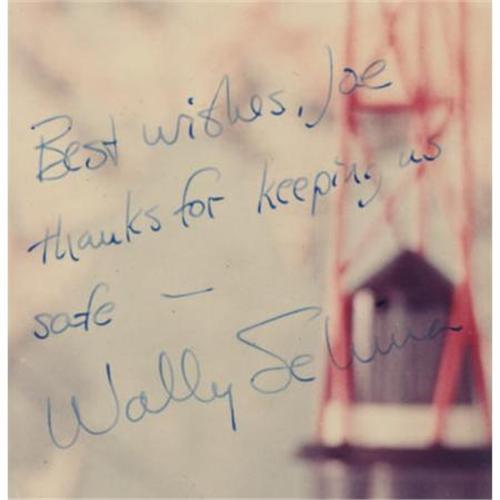 Best wishes, Joe
thanks for keeping us
safe —
Wally Schirra